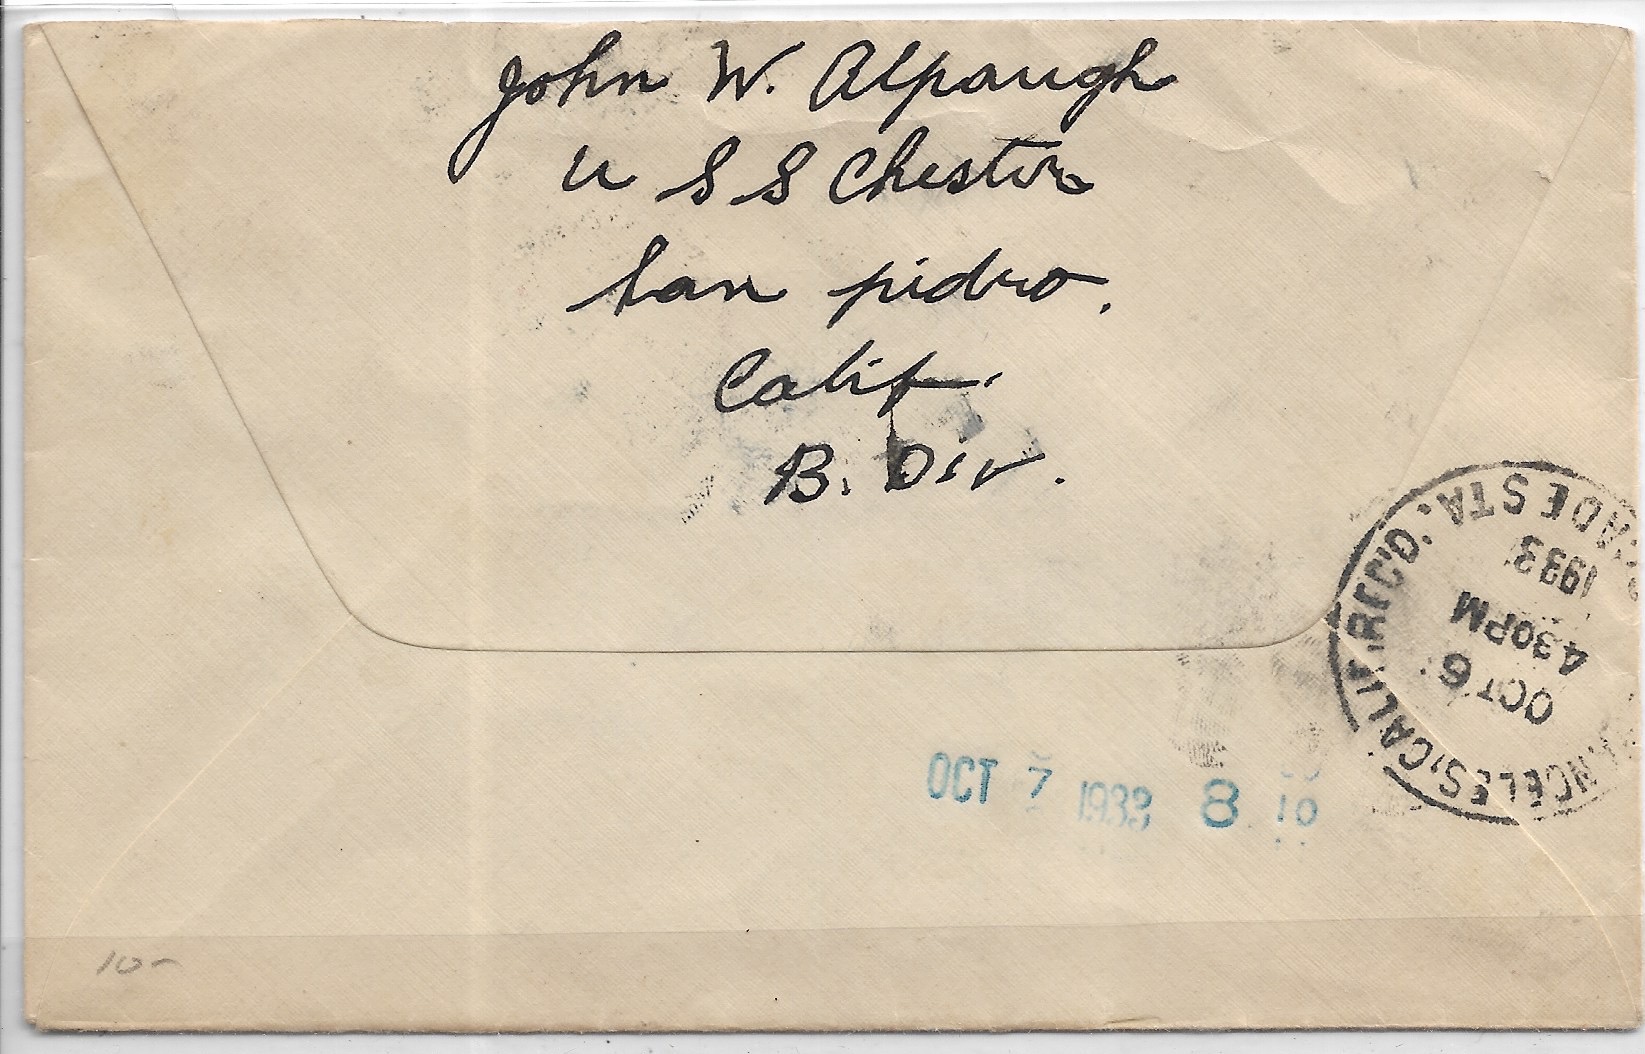 John W. Alpaugh
U S S Chester
San pidro.
Calif.
B. Div.
ANGELES, CALIF. REC'D.
ADE STA.
OCT 6
430PM
1933
OCT 7 1933 8 10
10-